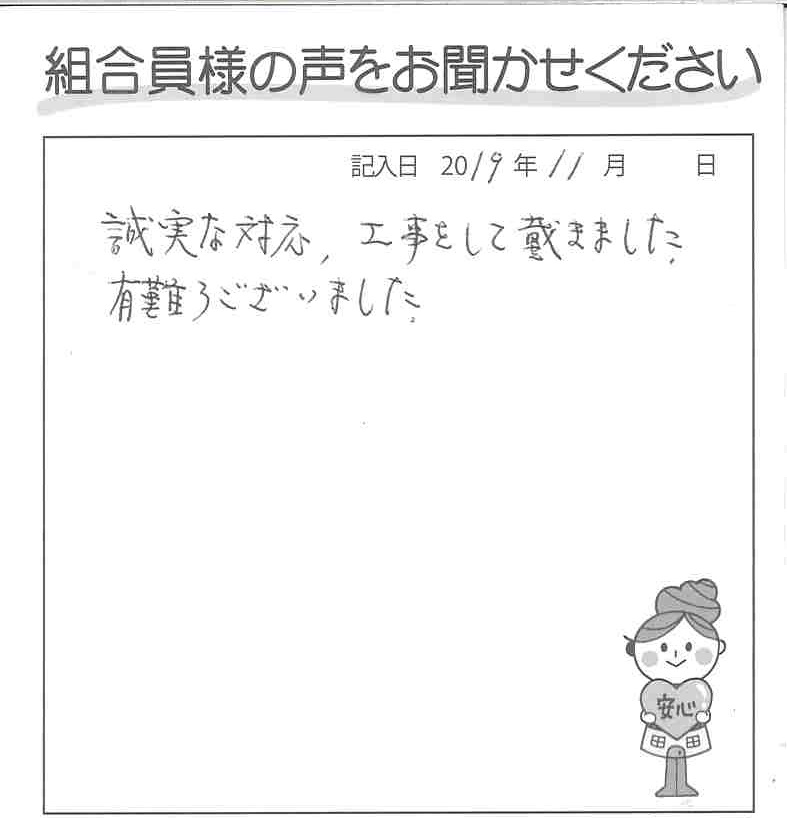 組合員様の声をお聞かせください
記入日 2019年 11月 日
誠実な対応, 工事をして戴きました.
有難うございました。
安心